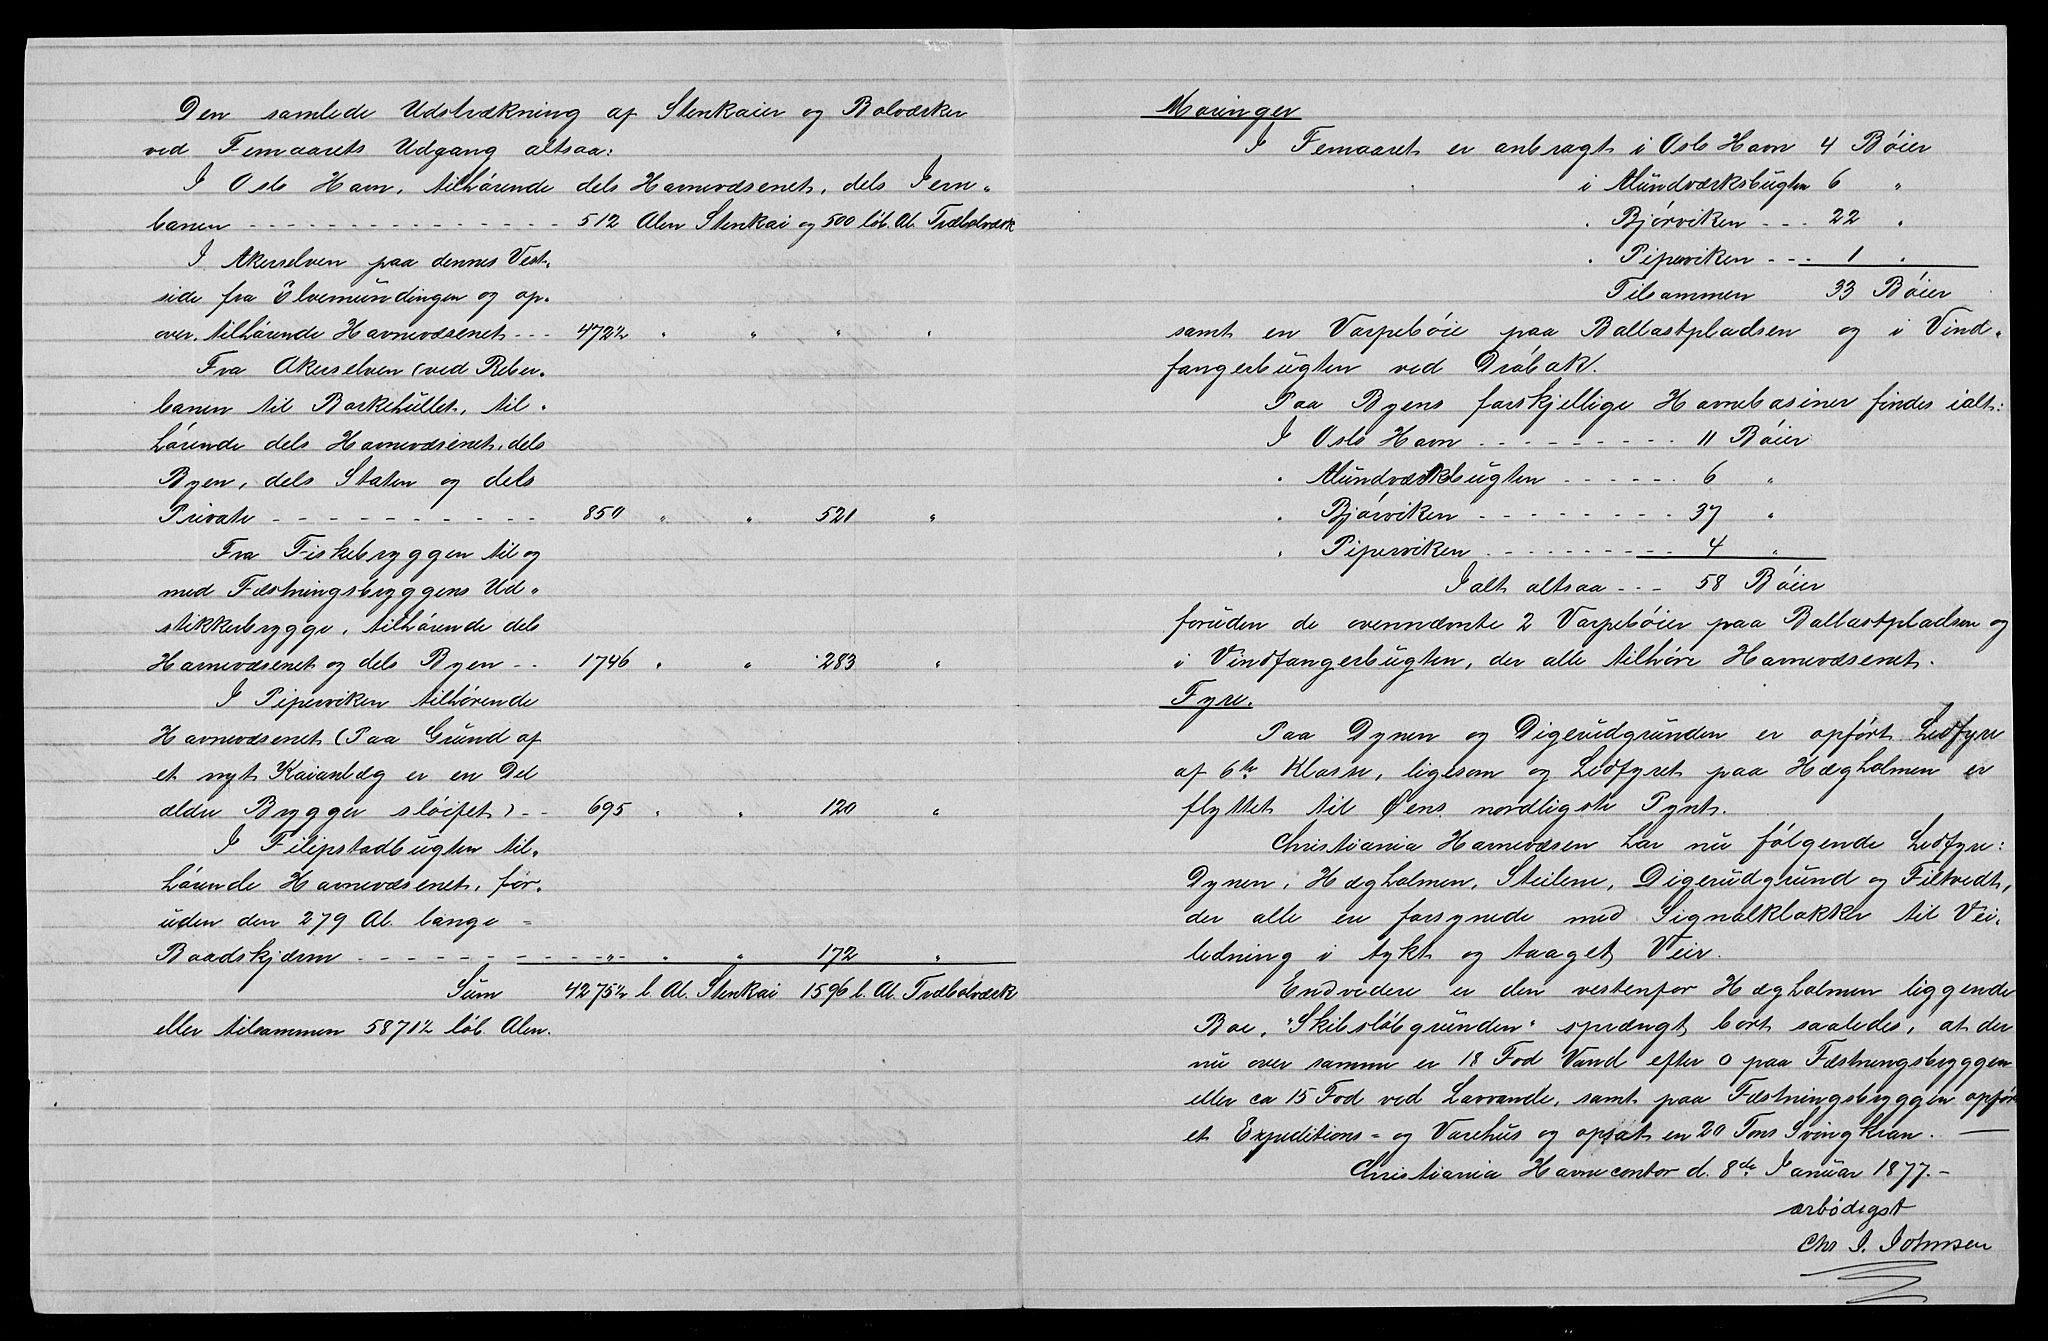 Den samlede Udstrækning af Stenkaier og Bolværker
ved Femaarets Udgang altsaa:
I Oslo Havn, tilhørende dels Havnevæsenet, dels Jern„
banen - - - - - - - - - - - - - - - 512 Alen Stenkai og 500 løb. Al. Træbolværk
I Akerselven paa dennes Vest„
side fra Elvemundingen og op„
over, tilhørende Havnevæsenet - - - 472½ „ „ „ „
Fra Akerselven (ved Reber„
banen til Borkehullet, til„
hørende dels Havnevæsenet, dels
Byen, dels Staten og dels
Private - - - - - - - - - - - 850 „ „ 521 „
Fra Fiskebryggen til og
med Fæstningsbryggens Ud„
stikkerbrygge, tilhørende dels
Havnevæsenet og dels Byen - - 1746 „ „ 283 „
I Piperviken tilhørende
Havnevæsenet (Paa Grund af
et nyt Kaianlæg er en Del
ældre Brygger sløifet) - - 695 „ „ 120 „
I Filipstadbugten til„
hørende Havnevæsenet, for„
uden den 279 Al. lange
Baadskjærm - - - - - - - - - „ „ „ 172 „
Sum 4275½ l. Al. Stenkai 1596 l. Al. Træbolværk
eller tilsammen 5871½ løb. Alen.
Moringer
I Femaaret er anbragt i Oslo Havn 4 Bøier
i Alundværksbugten 6 „
„ Bjørviken - - - 22 „
„ Piperviken - - - 1 „
Tilsammen 33 Bøier
samt en Varpebøie paa Ballastpladsen og i Vind„
fangerbugten ved Drøbak.
Paa Byens forskjellige Havnebasiner findes ialt:
I Oslo Havn - - - - - - - - - 11 Bøier
„ Alundværksbugten - - - - - - 6 „
„ Bjørviken - - - - - - - - - 37 „
„ Piperviken - - - - - - - - - 4 „
Ialt altsaa - - - 58 Bøier
foruden de ovennævnte 2 Varpebøier paa Ballastpladsen og
i Vindfangerbugten, der alle tilhøre Havnevæsenet.
Fyre.
Paa Dynen og Digerudgrunden er opført Ledfyre
af 6te Klasse, ligesom og Ledfyret paa Hægholmen er
flyttet til Øens nordligste Pynt.
Christiania Havnevæsen har nu følgende Ledfyre:
Dynen, Hægholmen, Steilene, Digerudgrund og Filtvedt,
der alle ere forsynede med Signalklokke til Vei„
ledning i tykt og taaget Veir.
Endvidere er den vestenfor Hægholmen liggende
Boe, "Skibsløbgrunden" sprængt bort saaledes, at der
nu over samme er 18 Fod Vand efter 0 paa Fæstningsbryggen
eller ca 15 Fod ved Lavvande, samt paa Fæstningsbryggen opført
et Expeditions- og Varehus og opsat en 20 Tons Svingkran. —
Christiania Havnecontor d. 8de Januar 1877.-
ærbødigst
Chr J. Johnsen